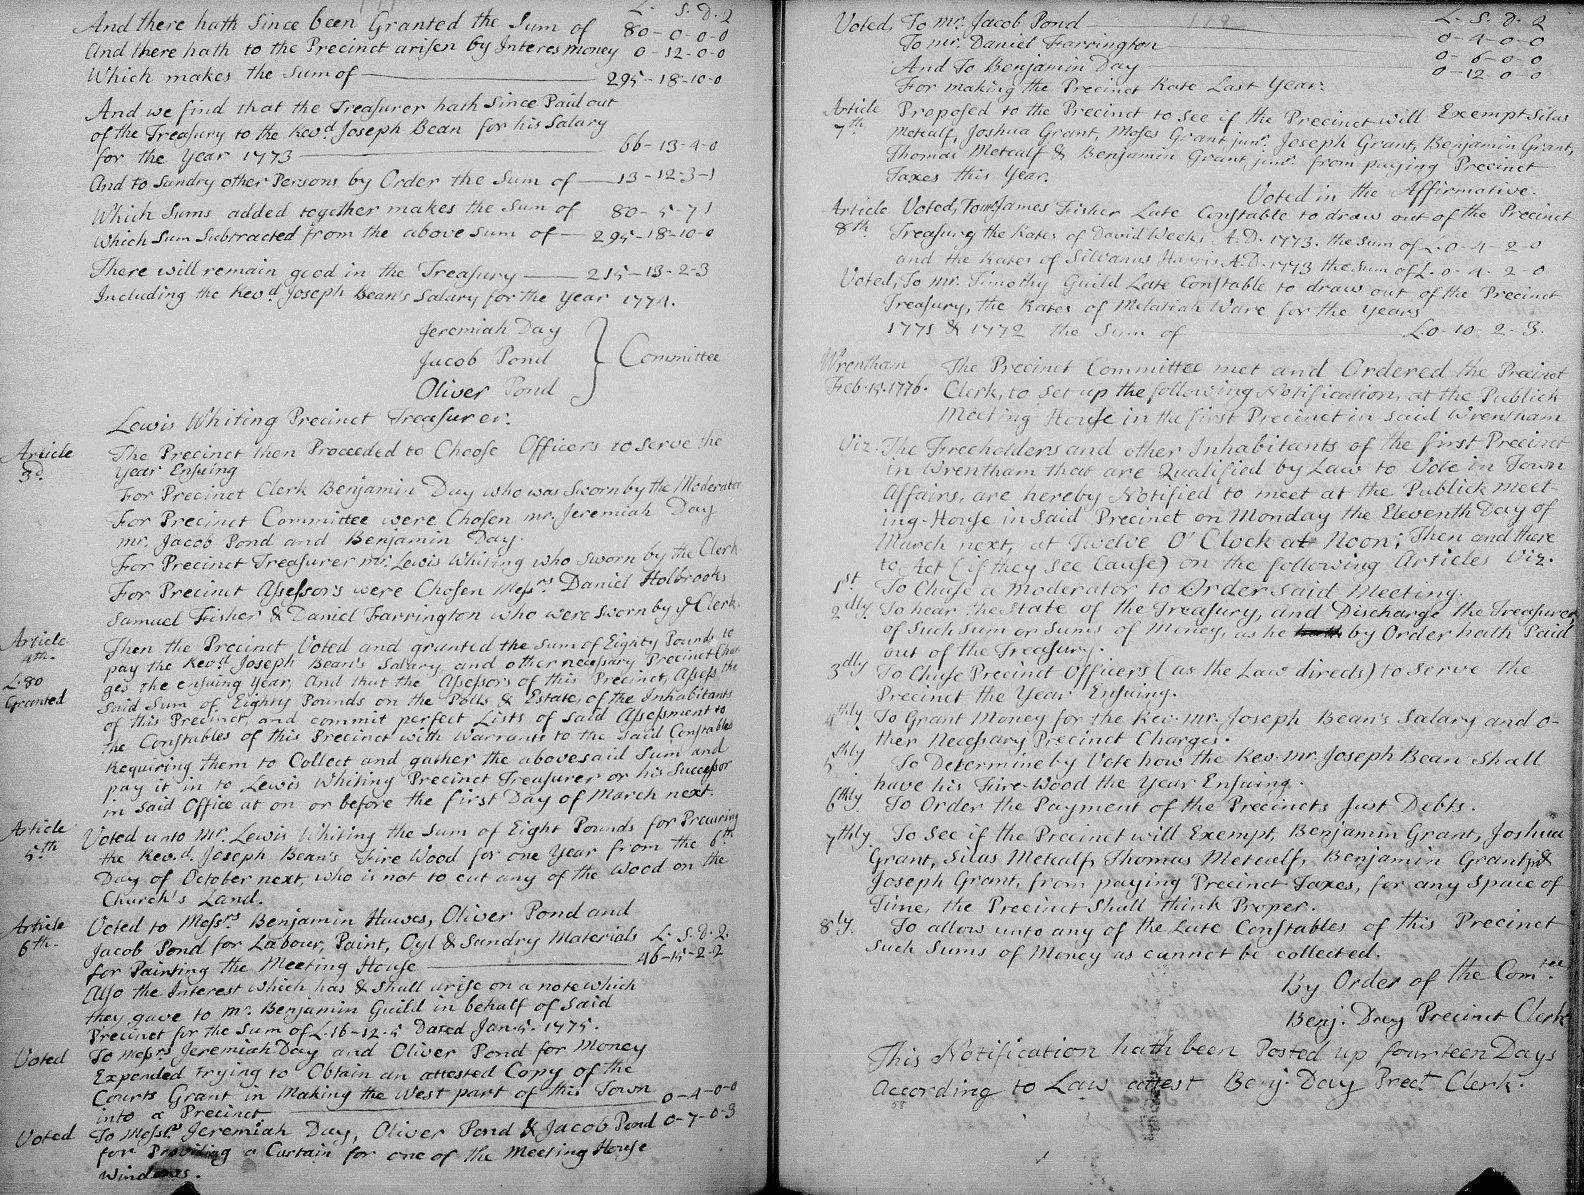 L. S. D. 2
And there hath Since been Granted the Sum of 80-0-0-0
And there hath to the Precinct arisen by Interes money 0-12-0-0
Which makes the Sum of 295-18-10-0
And we find that the Treasurer hath Since Paid out
of the Treasury to the Revd. Joseph Bean for his Salary
for the Year 1773 66-13-4-0
And to Sundry other Persons by Order the Sum of 13-12-3-1
Which Sums added together makes the Sum of 80-5-7 1
which Sum Subtracted from the above Sum of 295-18-10-0
There will remain good in the Treasury 215-13-2-3
Including the Revd. Joseph Bean's Salary for the Year 1774.
Jeremiah Day
Jacob Pond } Committee
Oliver Pond
Lewis Whiting Precinct Treasurer.
Article 3d. The Precinct then Proceeded to Choose Officers to Serve the
Year Ensuing
For Precinct Clerk Benjamin Day who was Sworn by the Moderator
For Precinct Committee were Chosen mr. Jeremiah Day
mr. Jacob Pond and Benjamin Day.
For Precinct Treasurer mr. Lewis Whiting who Sworn by the Clerk.
For Precinct Assessors were Chosen Messrs Daniel Holbrook
Samuel Fisher & Daniel Farrington who were Sworn by ye Clerk.
Article 4th. Then the Precinct Voted and granted the Sum of Eighty Pounds to
pay the Revd. Joseph Bean's Salary and other necessary Precinct Char
L.80 ges the ensuing Year, And that the Assessors of this Precinct, Assess the
Granted Said Sum of Eighty Pounds on the Polls & Estate, of the Inhabitants
of this Precinct, and commit perfect Lists of Said Assessment to
the Constables of this Precinct with Warrants to the Said Constables
Requiring them to Collect and gather the abovesaid Sum and
pay it in to Lewis Whiting Precinct Treasurer or his Successor
in Said Office at on or before the first Day of March next.
Article 5.th Voted unto Mr. Lewis Whiting the Sum of Eight Pounds for Procuring
the Rev.d. Joseph Bean's Fire Wood for one Year from the 6th
Day of October next, who is not to cut any of the Wood on the
Church's Land.
Article 6th. Voted to Messrs Benjamin Hawes, Oliver Pond and
Jacob Pond for Labour, Paint, Oyl & Sundry Materials L. S. D. 2.
for Painting the Meeting House 46-15-2-2
Also the Interest which has & Shall arise on a note which
they gave to mr. Benjamin Guild in behalf of Said
Precinct for the Sum of L.16-12-5 Dated Jan. 5. 1775.
Voted To Messrs Jeremiah Day and Oliver Pond for Money
Expended trying to Obtain an attested Copy of the
Courts Grant in Making the West part of this Town
into a Precinct 0-4-0-0
Voted To Messrs Jeremiah Day, Oliver Pond & Jacob Pond 0-7-0-3
for Providing a Curtain for one of the Meeting House
Windows.
118
L. S. D. 2
Voted, To mr. Jacob Pond 0-4-0-0
To mr. Daniel Farrington 0-6-0-0
And To Benjamin Day 0-12-0-0
For making the Precinct Rate Last Year.
Article 7th Proposed to the Precinct to See if the Precinct will Exempt Silas
Metcalf, Joshua Grant, Moses Grant junr. Joseph Grant, Benjamin Grant,
Thomas Metcalf & Benjamin Grant junr. from paying Precinct
Taxes this Year.
Voted in the Affirmative.
Article 8th. Voted, To mr James Fisher Late Constable to draw out of the Precinct
Treasury the Rates of David Weeks A.D. 1773. the Sum of L.0-4-2-0
and the Rates of Silvanus Harris A.D. 1773 the Sum of L.0-4-2-0
Voted, To mr. Timothy Guild Late Constable to draw out of the Precinct
Treasury, the Rates of Melatiah Ware for the Years
1771 & 1772 the Sum of L.0-10-2-3.
Wrentham The Precinct Committee met and Ordered the Precinct
Feb. 12. 1776. Clerk, to Set up the following Notification, at the Publick
Meeting House in the first Precinct in Said Wrentham
Viz. The Freeholders and other Inhabitants of the first Precinct
in Wrentham that are Qualified by Law to Vote in Town
Affairs, are hereby Notified to meet at the Publick meet-
ing-House in Said Precinct on Monday the Eleventh Day of
March next, at Twelve O'Clock at Noon; Then and there
to Act (if they See Cause) on the following Articles Viz.
1st To Chuse a Moderator to Order Said Meeting.
2dly. To hear the State of the Treasury, and Discharge the Treasurer
of Such Sum or Sums of Money, as he hath by Order hath Paid
out of the Treasury.
3dly To Chuse Precinct Officers (as the Law directs) to Serve the
Precinct the Year Ensuing.
4thly To Grant Money for the Rev. mr. Joseph Bean's Salary and o-
ther Necessary Precinct Charges.
5thly To Determine by Vote how the Rev. mr. Joseph Bean Shall
have his Fire-Wood the Year Ensuing.
6thly To Order the Payment of the Precincts Just Debts.
7thly. To See if the Precinct will Exempt, Benjamin Grant, Joshua
Grant, Silas Metcalf, Thomas Metcalf, Benjamin Grant jr &
Joseph Grant, from paying Precinct Taxes, for any Space of
Time, the Precinct Shall think Proper.
8ly. To allow unto any of the Late Constables of this Precinct
Such Sums of Money as cannot be collected.
By Order of the Comtee.
Benj. Day Precinct Clerk
This Notification hath been Posted up fourteen Days
According to Law attest Benj. Day Prect. Clerk.